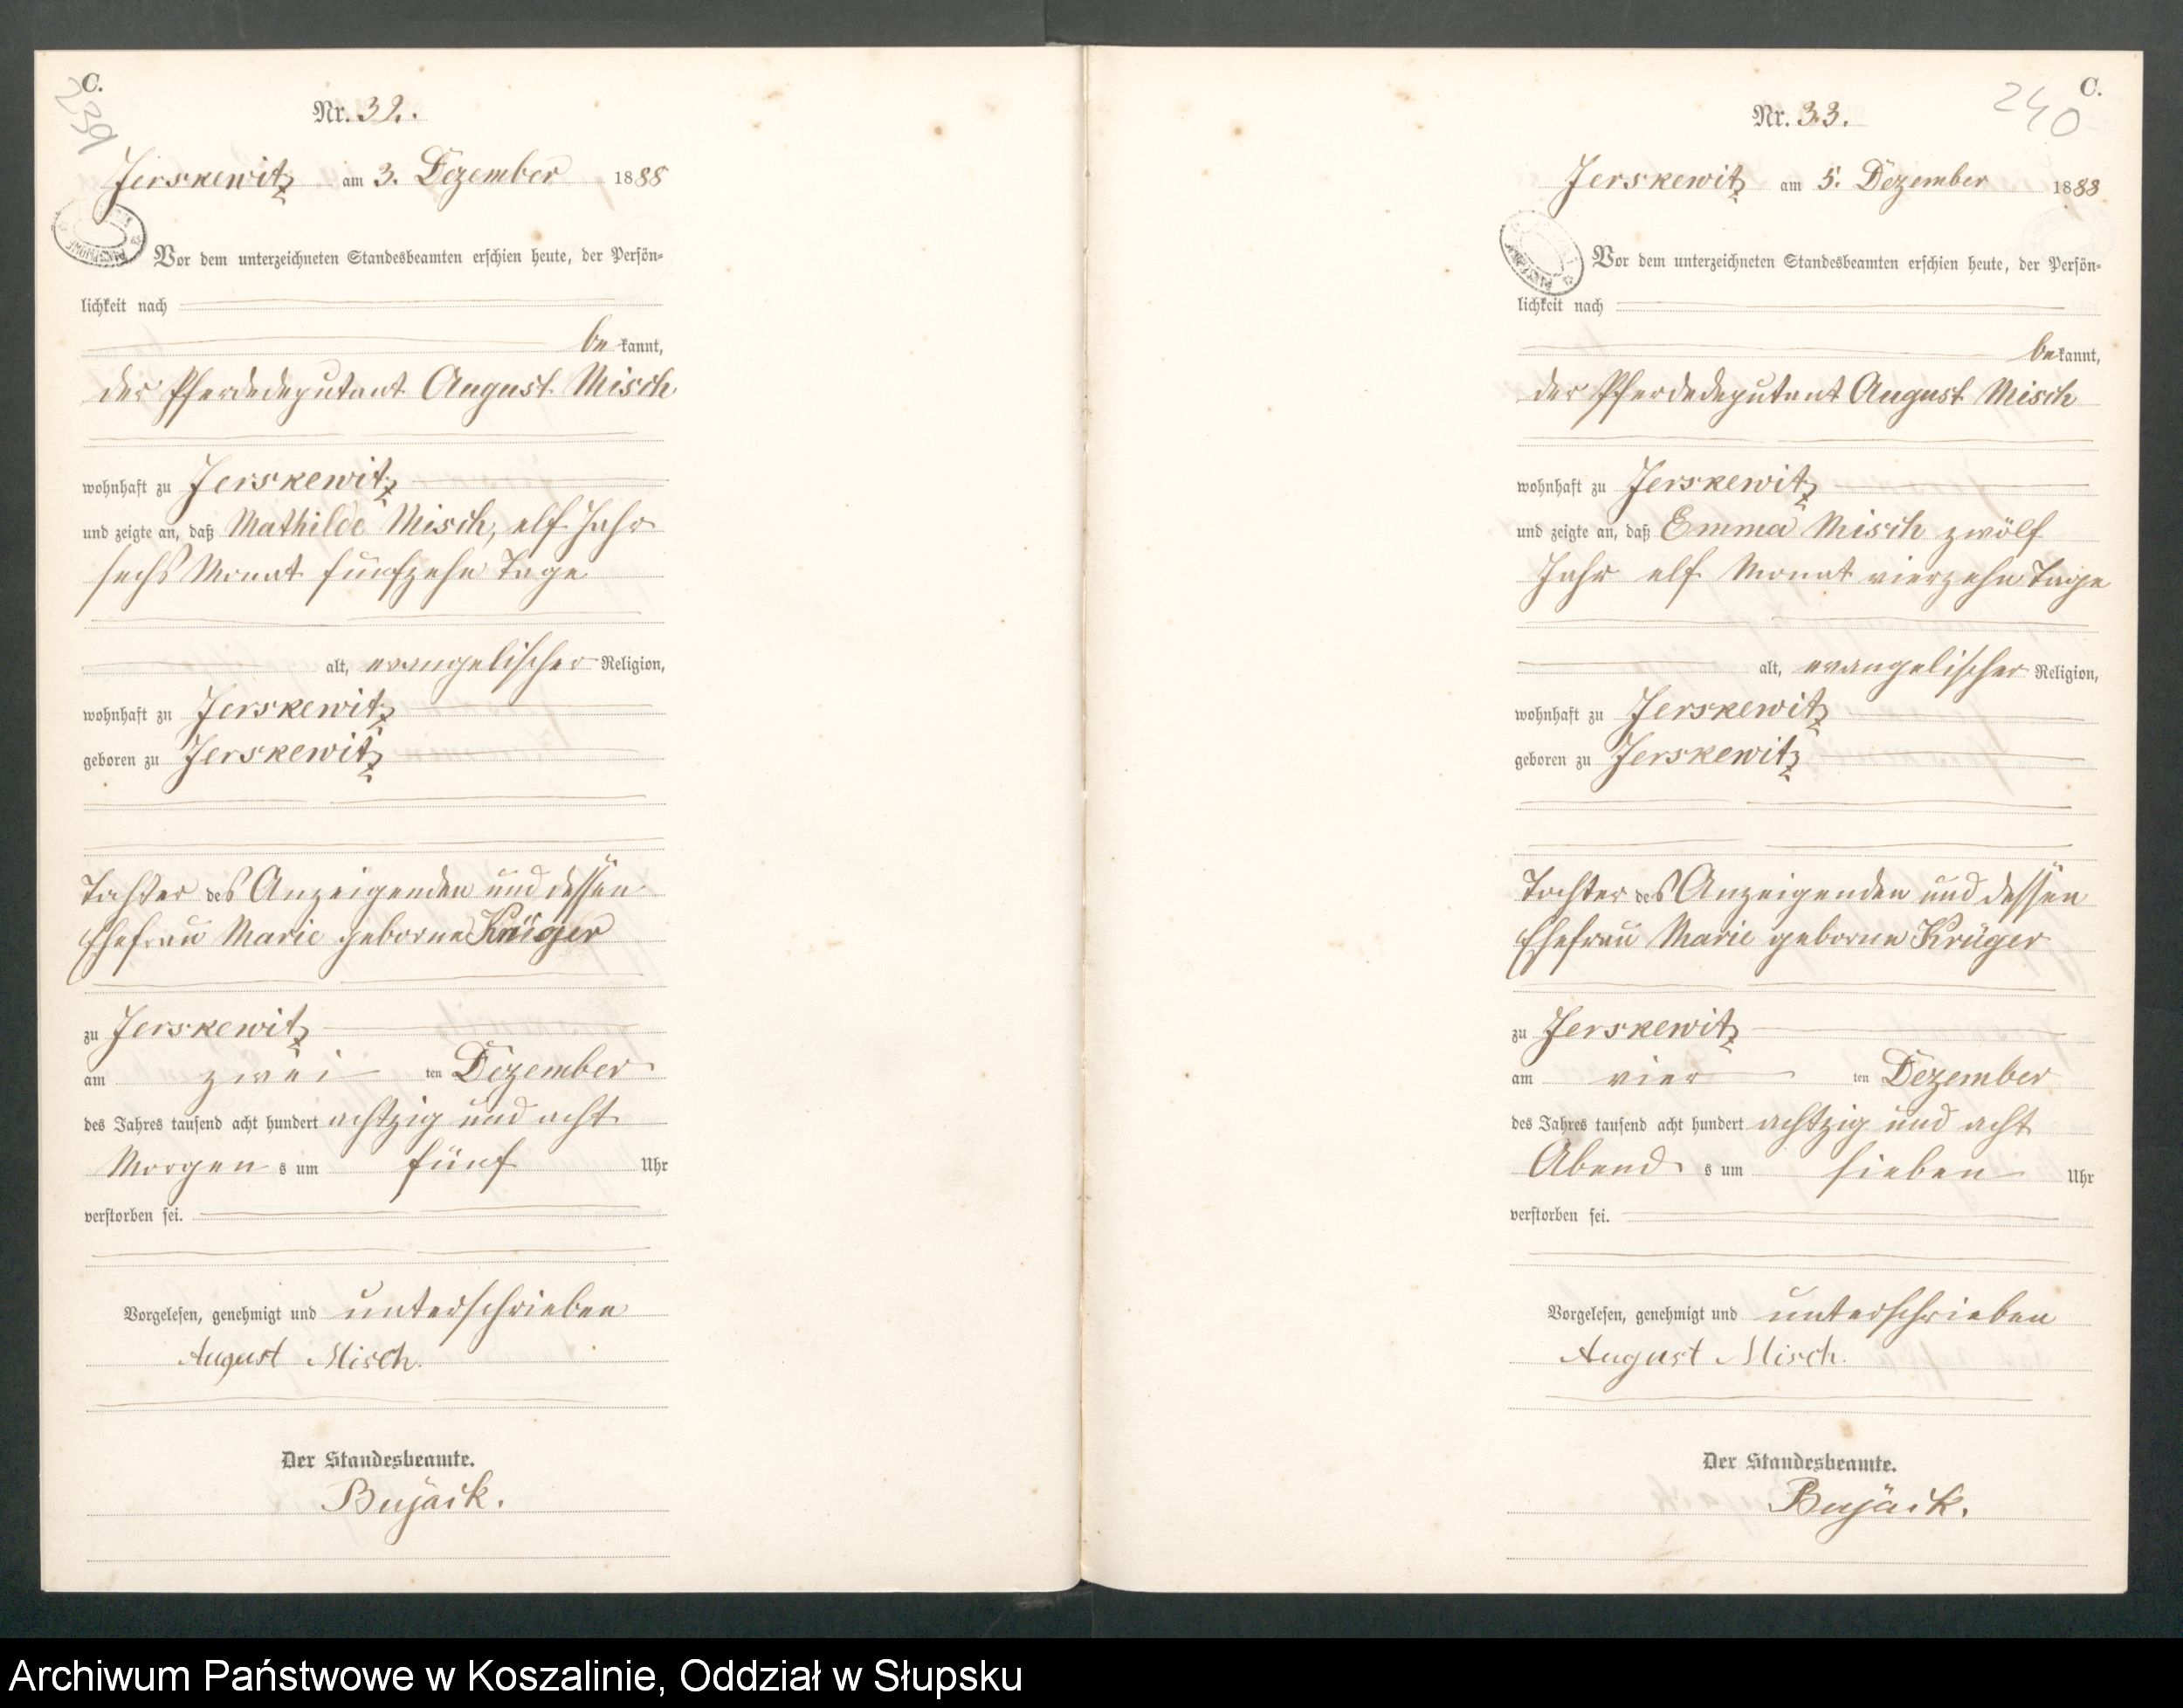 C.
239
Nr. 32.
Jerskewitz am 3. Dezember 1888
Vor dem unterzeichneten Standesbeamten erschien heute, der Persön-
lichkeit nach
be kannt,
der Pferdedeputant August Misch
wohnhaft zu Jerskewitz
und zeigte an, daß Mathilde Misch, elf Jahr
sechs Monat fünfzehn Tage
alt, evangelischer Religion,
wohnhaft zu Jerskewitz
geboren zu Jerskewitz
Tochter des Anzeigenden und dessen
Ehefrau Marie geborne Krüger
zu Jerskewitz
am zwei ten Dezember
des Jahres tausend acht hundert achtzig und acht
Morgen s um fünf Uhr
verstorben sei.
Vorgelesen, genehmigt und unterschrieben
August Misch.
Der Standesbeamte.
Bujäck.
C.
240
Nr. 33.
Jerskewitz am 5. Dezember 1888
Vor dem unterzeichneten Standesbeamten erschien heute, der Persön-
lichkeit nach
be kannt,
der Pferdedeputant August Misch
wohnhaft zu Jerskewitz
und zeigte an, daß Emma Misch zwölf
Jahr elf Monat vierzehn Tage
alt, evangelischer Religion,
wohnhaft zu Jerskewitz
geboren zu Jerskewitz
Tochter des Anzeigenden und dessen
Ehefrau Marie geborne Krüger
zu Jerskewitz
am vier ten Dezember
des Jahres tausend acht hundert achtzig und acht
Abend s um sieben Uhr
verstorben sei.
Vorgelesen, genehmigt und unterschrieben
August Misch.
Der Standesbeamte.
Bujäck.
Archiwum Państwowe w Koszalinie, Oddział w Słupsku